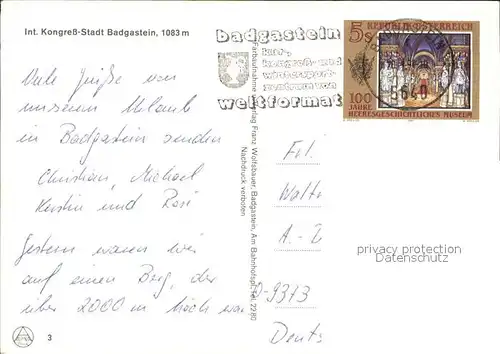 Int. Kongreß-Stadt Badgastein, 1083 m
badgastein
kur-,
kongreß- und
wintersport-
zentrum von
weltformat
5s REPUBLIK ÖSTERREICH
5640
100 JAHRE
HEERESGESCHICHTLICHES MUSEUM
Viele Grüße von
unserem Urlaub
in Badgastein senden
Christian, Michael
Kerstin und Rosi
Gestern waren wir
auf einen Berg, der
über 2000 m hoch war
Farbaufnahme Verlag Franz Wolfsbauer, Badgastein, Am Bahnhofspl., Tel. 2280
Nachdruck verboten
Frl.
Walt
A.-
D-9373
Deuts
privacy protection
Datenschutz
3